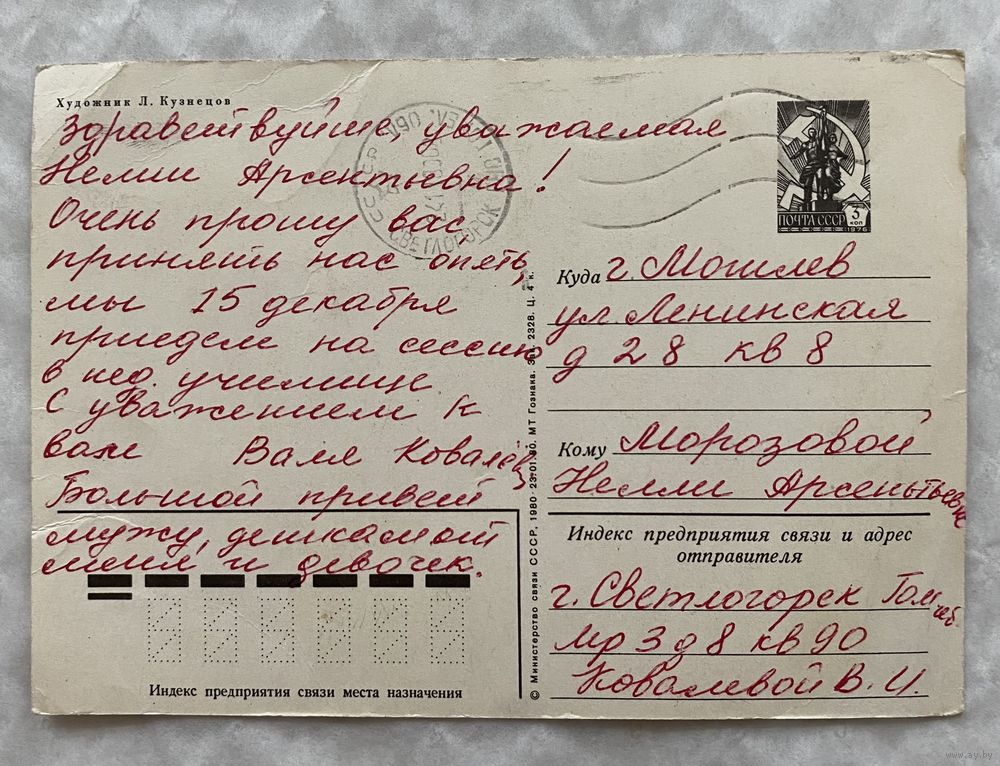 Художник Л. Кузнецов
Здравствуйте, уважаемая
Нелли Арсентьевна!
Очень прошу вас,
принять нас опять,
мы 15 декабря
приедем на сессию
в пед. училище
С уважением к
вам Валя Ковалёва
Большой привет
мужу, деткам от
меня и девочек.
Индекс предприятия связи места назначения
© Министерство связи СССР, 1980 23.01.80. МТ Гознака. Зак. 2328. Ц. 4 к.
ПОЧТА СССР
3 коп
1976
СССР
СВЕТЛОГОРСК
Куда г. Могилев
ул. Ленинская
д 28 кв 8
Кому Морозовой
Нелли Арсентьевне
Индекс предприятия связи и адрес
отправителя
г. Светлогорск Гом
мр 3 д 8 кв 90
Ковалевой В. И.
www.ay.by